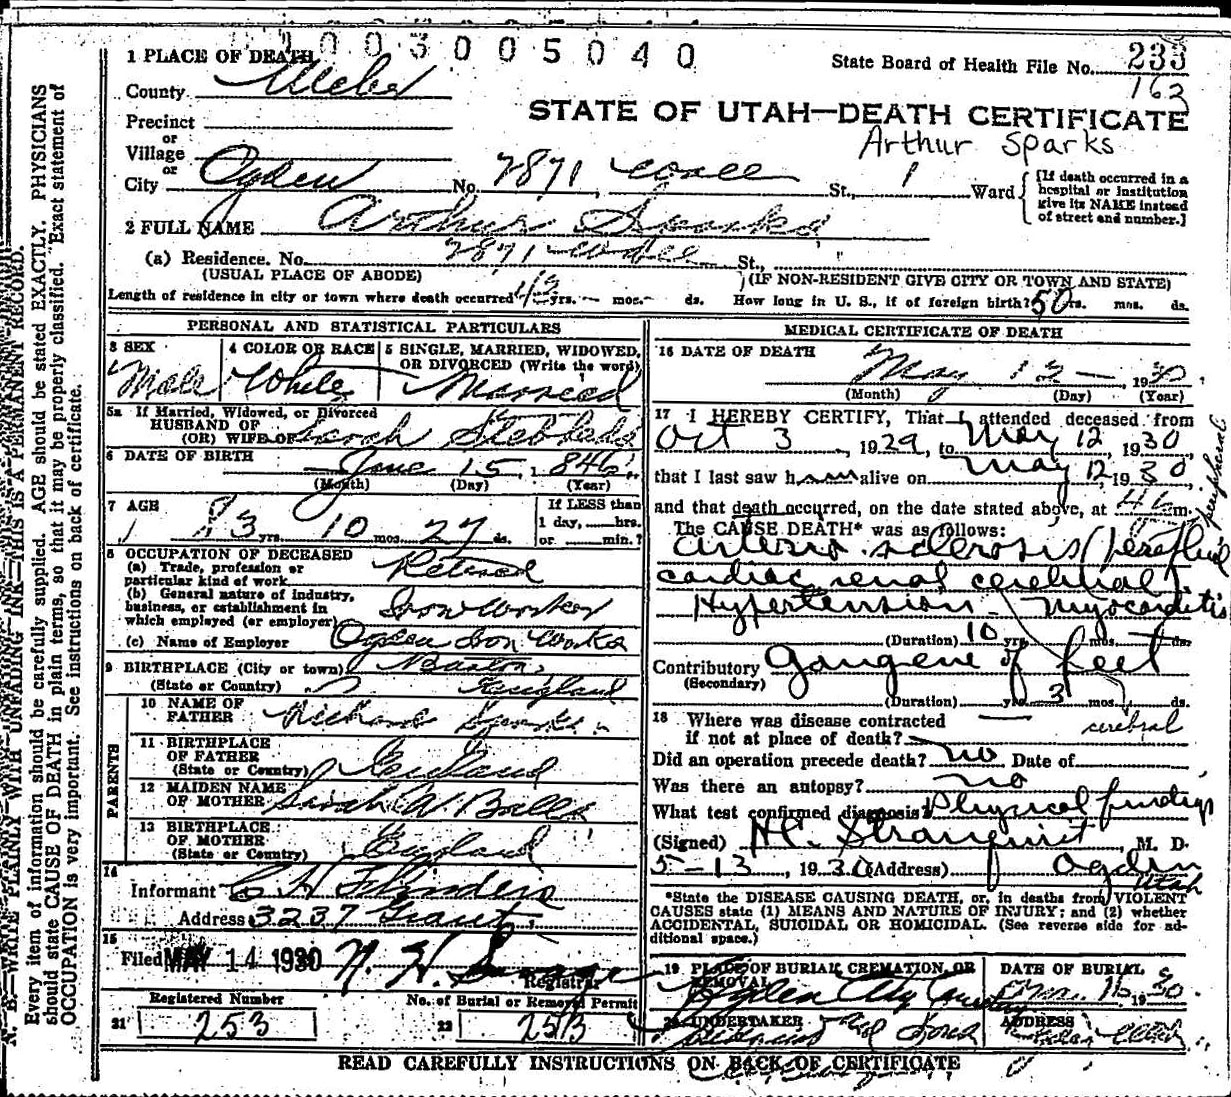 003005040
1 PLACE OF DEATH
State Board of Health File No. 233
163
County Weber
STATE OF UTAH—DEATH CERTIFICATE
Precinct
or
Village
Arthur Sparks
or
City Ogden No. 2871 St., 1 Ward
[If death occurred in a
hospital or institution
give its NAME instead
of street and number.]
2 FULL NAME Arthur Sparks
(a) Residence. No. 2871 St.,
(USUAL PLACE OF ABODE) (IF NON-RESIDENT GIVE CITY OR TOWN AND STATE)
Length of residence in city or town where death occurred yrs. mos. ds. How long in U. S., if of foreign birth? 50 yrs. mos. ds.
PERSONAL AND STATISTICAL PARTICULARS
3 SEX 4 COLOR OR RACE 5 SINGLE, MARRIED, WIDOWED,
OR DIVORCED (Write the word)
Male White Married
5a If Married, Widowed, or Divorced
HUSBAND OF
(OR) WIFE OF Sarah
6 DATE OF BIRTH June 15, 1846
(Month) (Day) (Year)
7 AGE If LESS than
1 day, hrs.
83 yrs. 10 mos. 27 ds. or min.?
8 OCCUPATION OF DECEASED
(a) Trade, profession or
particular kind of work Retired
(b) General nature of industry,
business, or establishment in
which employed (or employer) Iron Worker
(c) Name of Employer Ogden Iron Works
9 BIRTHPLACE (City or town)
(State or Country) England
PARENTS
10 NAME OF
FATHER Richard Sparks
11 BIRTHPLACE
OF FATHER
(State or Country) England
12 MAIDEN NAME
OF MOTHER Sarah W.
13 BIRTHPLACE
OF MOTHER
(State or Country) England
14
Informant C H Flinders
Address 3237 Grant
15
Filed MAY 14 1930
Registrar
Registered Number No. of Burial or Removal Permit
21 253 22 253
MEDICAL CERTIFICATE OF DEATH
16 DATE OF DEATH
May 12 1930
(Month) (Day) (Year)
17 I HEREBY CERTIFY, That I attended deceased from
Oct 3, 1929, to May 12, 1930
that I last saw h alive on May 12, 1930,
and that death occurred, on the date stated above, at m.
The CAUSE DEATH* was as follows:
peripheral
arterio sclerosis
cardiac renal cerebral)
Hypertension - myocarditis
(Duration) 10 yrs. mos. ds.
Contributory Gangrene of feet
(Secondary)
(Duration) yrs. 3 mos. ds.
18 Where was disease contracted
cerebral
if not at place of death?
Did an operation precede death? no Date of
Was there an autopsy? no
What test confirmed diagnosis? Physical findings
(Signed) H.C. Stranquist, M. D.
5-13, 1930 (Address) Ogden
Utah
*State the DISEASE CAUSING DEATH, or, in deaths from VIOLENT
CAUSES state (1) MEANS AND NATURE OF INJURY; and (2) whether
ACCIDENTAL, SUICIDAL OR HOMICIDAL. (See reverse side for ad-
ditional space.)
19 PLACE OF BURIAL, CREMATION, OR
REMOVAL
DATE OF BURIAL
Ogden City Cemetery 1930.
20 UNDERTAKER ADDRESS
and Sons
READ CAREFULLY INSTRUCTIONS ON BACK OF CERTIFICATE
N. B.—WRITE PLAINLY WITH UNFADING INK—THIS IS A PERMANENT RECORD.
Every item of information should be carefully supplied. AGE should be stated EXACTLY. PHYSICIANS
should state CAUSE OF DEATH in plain terms, so that it may be properly classified. Exact statement of
OCCUPATION is very important. See instructions on back of certificate.